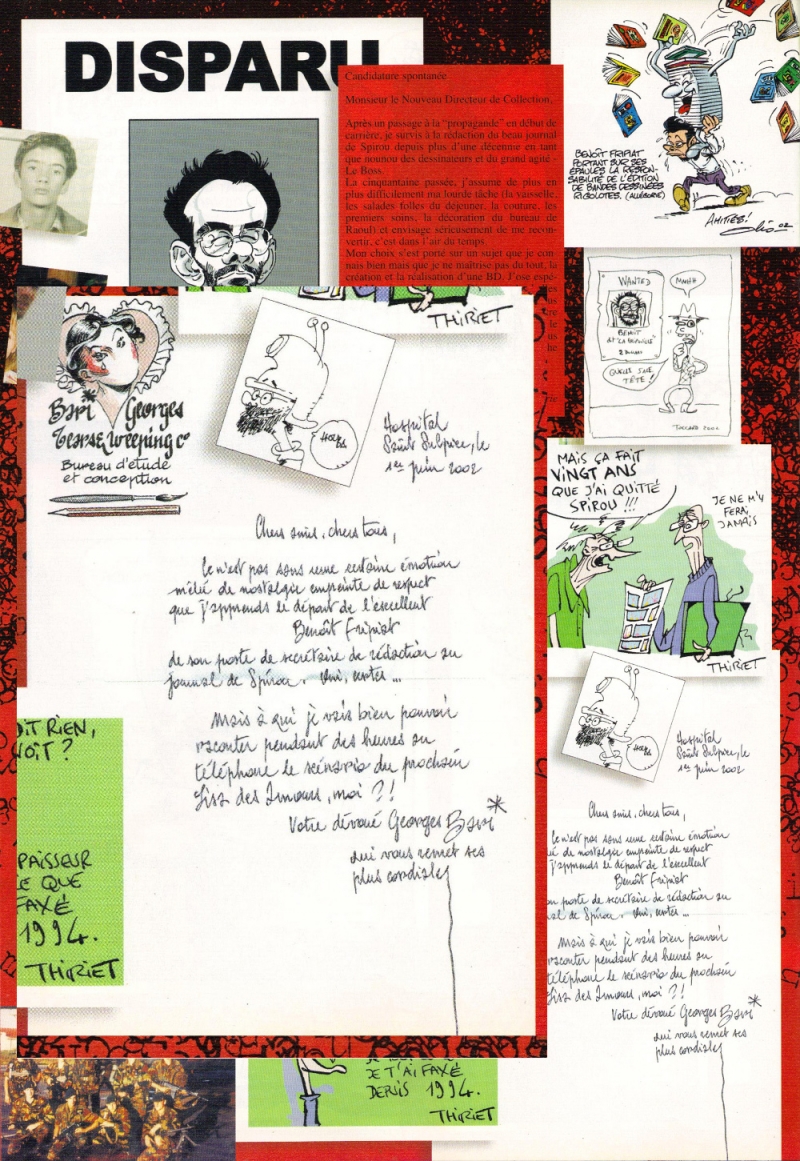 DISPARU
Candidature spontanée
Monsieur le Nouveau Directeur de Collection,
Après un passage à la "propagande" en début de
carrière, je survis à la rédaction du beau journal
de Spirou depuis plus d'une décennie en tant
que nounou des dessinateurs et du grand agité -
Le Boss.
La cinquantaine passée, j'assume de plus en
plus difficilement ma lourde tâche (la vaisselle,
les salades folles du déjeuner, la couture, les
premiers soins, la décoration du bureau de
Raoul) et envisage sérieusement de me recon-
vertir, c'est dans l'air du temps.
Mon choix s'est porté sur un sujet que je con-
nais bien mais que je ne maîtrise pas du tout, la
création et la réalisation d'une BD. J'ose espé-
BENOÎT FRIPIAT
PORTANT SUR SES
ÉPAULES LA RESPON-
SABILITÉ DE L'ÉDITION
DE BANDES DESSINÉES
RIGOLOTES. (ALLÉGORIE)
AMITIÉS!
02
WANTED
BENOIT
MMHH
QUELLE SALE
TÊTE!
TOUCARD 2002
THIRIET
Bari Georges
Tearse Weeping Co
Bureau d'étude
et conception
Hospital
Saint Sulpice, le
1er juin 2002
Chers amis, chers tous,
Ce n'est pas sans une certaine émotion
mêlée de nostalgie empreinte de respect
que j'apprends le départ de l'excellent
Benoît Fripiat
de son poste de secrétaire de rédaction au
journal de Spirou. Oui, certes ...
Mais à qui je vais bien pouvoir
raconter pendant des heures au
téléphone le scénario du prochain
Lisa des Amours, moi ?!
Votre dévoué Georges Bari*
qui vous remet ses
plus cordiales
MAIS ÇA FAIT
VINGT ANS
QUE J'AI QUITTÉ
SPIROU !!!
JE NE M'Y
FERAI
JAMAIS
THIRIET
Hospital
Saint Sulpice, le
1er juin 2002
Chers amis, chers tous,
Ce n'est pas sans une certaine émotion
mêlée de nostalgie empreinte de respect
j'apprends le départ de l'excellent
Benoît Fripiat
son poste de secrétaire de rédaction au
de Spirou. Oui, certes ...
Mais à qui je vais bien pouvoir
raconter pendant des heures au
téléphone le scénario du prochain
Lisa des Amours, moi ?!
Votre dévoué Georges Bari*
qui vous remet ses
plus cordiales
DIT RIEN,
VOIT ?
PAISSEUR
CE QUE
FAXÉ
1994.
THIRIET
JE T'AI FAXÉ
DEPUIS 1994.
THIRIET